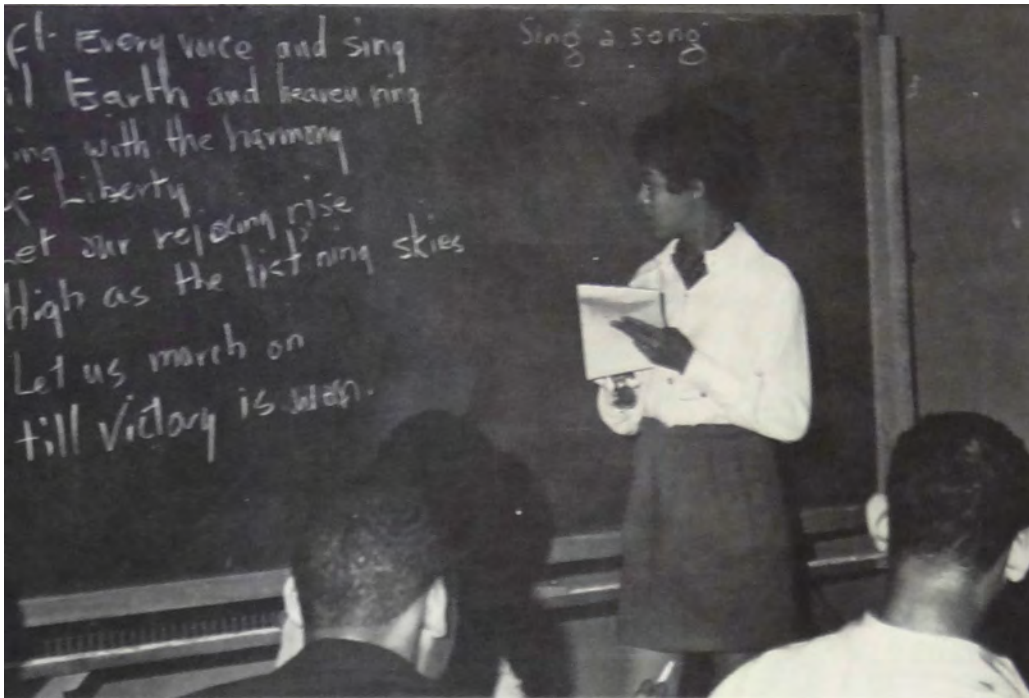 ft Every voice and sing
il Earth and heaven ring
ing with the harmony
of Liberty
Let our rejoicing rise
High as the list'ning skies
Let us march on
till Victory is won.
Sing a song